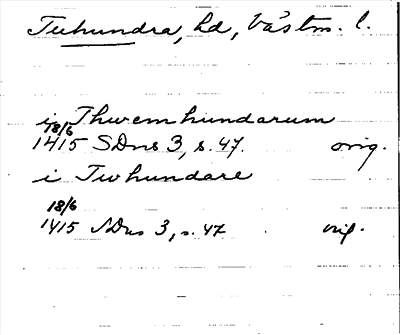 Tuhundra, hd, Västm. l.
i Thwemhundarum
18/6
1415 SDns 3, s. 47. orig.
i Twhundare
18/6
1415 SDns 3, s. 47 orig.